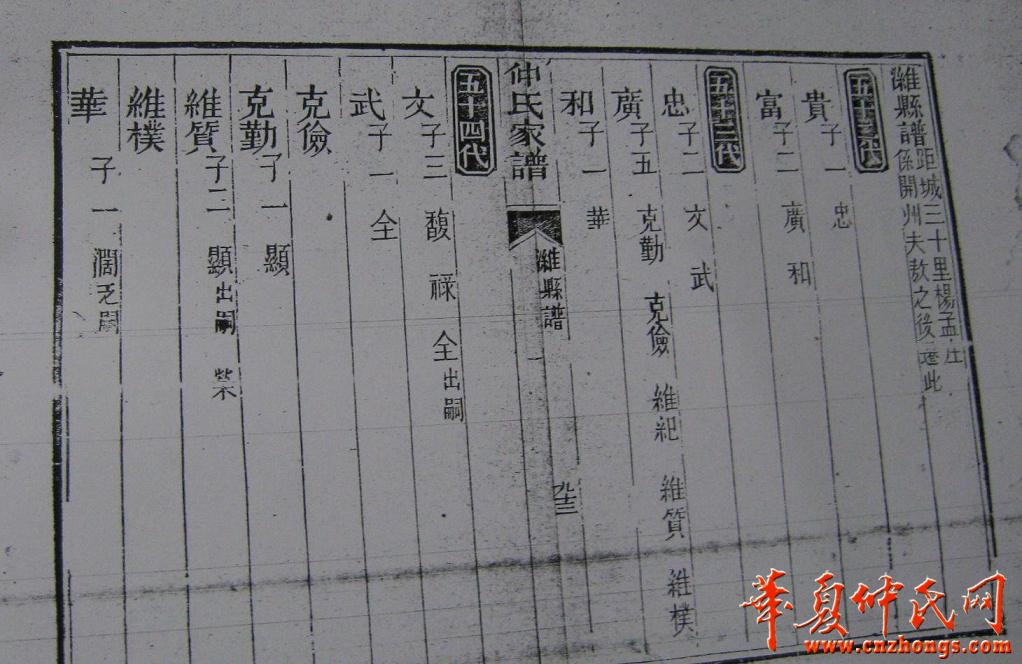 濰縣譜 距城三十里楊孟庄
係開州夫敖之後遷此
五十二代
貴 子一 忠
富 子二 廣 和
五十三代
忠 子二 文 武
廣 子五 克勤 克儉 維紀 維質 維樸
和 子一 華
仲氏家譜 濰縣譜 一
五十四代
文 子三 馥 祿 全出嗣
武 子一 全
克儉
克勤 子一 顯
維質 子二 顯出嗣
維樸
華 子一 濶乏嗣
華夏仲氏网
www.cnzhongs.com